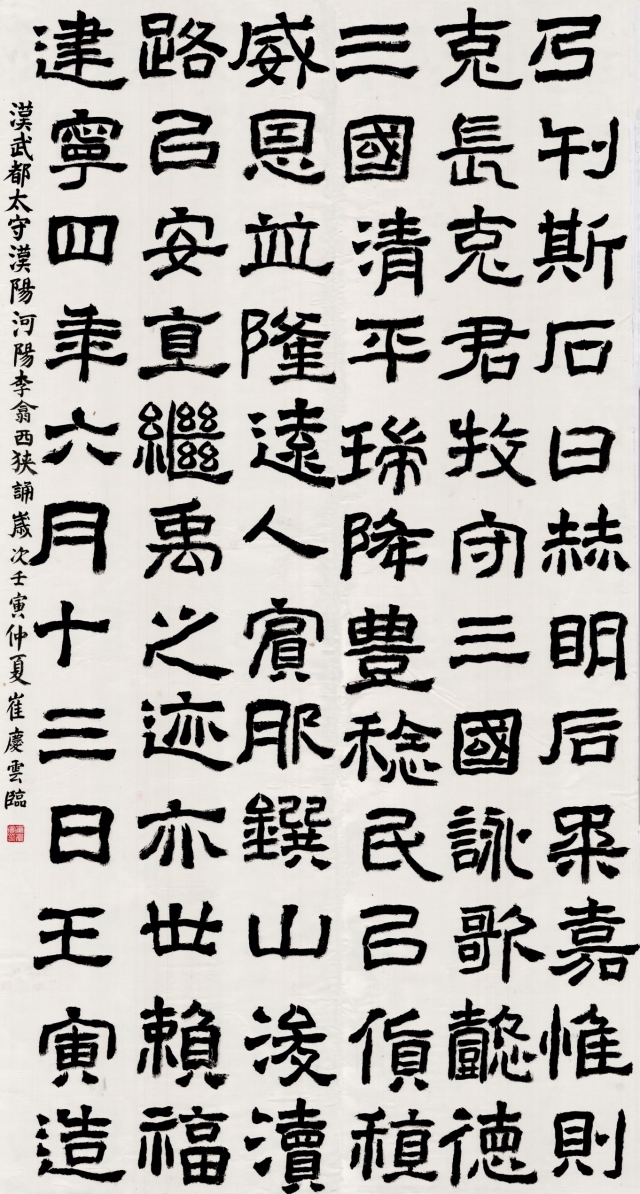 乃刊斯石曰赫明后柔嘉惟則
克長克君牧守三國詠歌懿德
三國清平瑞降豊稔民㠯貨稙
威恩並隆遠人賓服鐉山浚瀆
路㠯安直繼禹之迹亦世賴福
建寧四年六月十三日壬寅造
漢武都太守漢陽河陽李翕西狭誦歲次壬寅仲夏崔慶雲臨